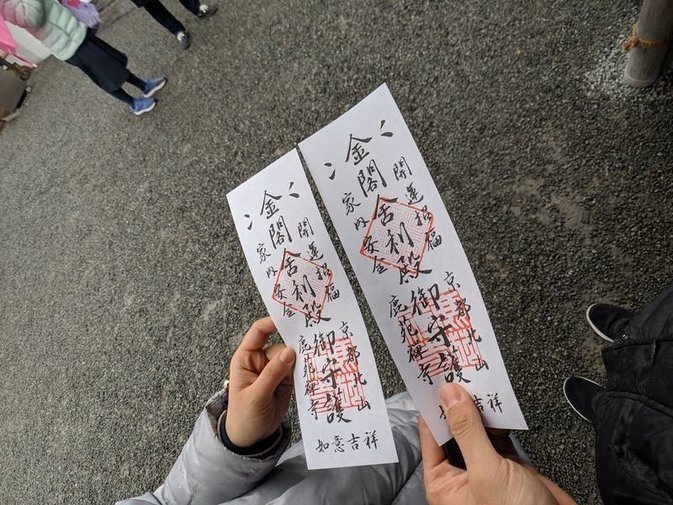 開運招福
京都北山
金閣舎利殿御守護
家内安全
鹿苑禅寺
如意吉祥
開運招福
京都北山
金閣舎利殿御守護
家内安全
鹿苑禅寺
如意吉祥